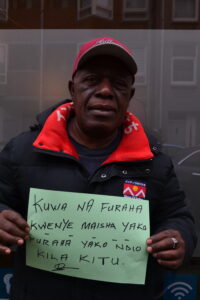 KUWA NA FURAHA
KWENYE MAISHA YAKO
FURAHA YAKO NDIO
KILA KITU.